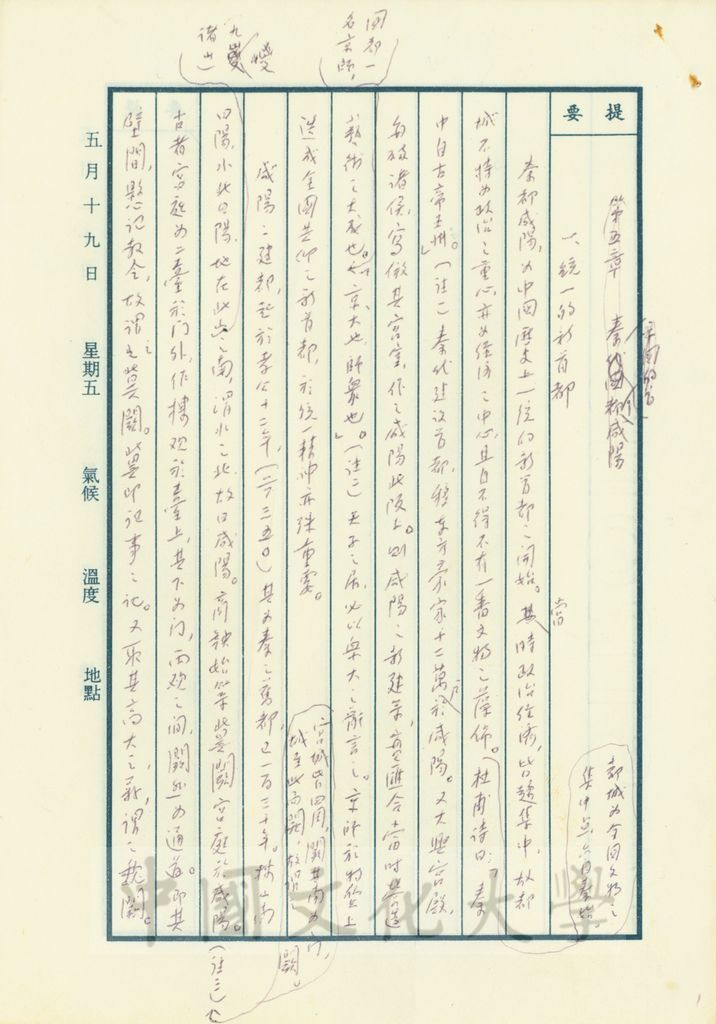 提要
第五章 秦代國都咸陽
帝國的首
一、統一的新首都
都城為全國文物之
集中點,自秦始
秦都咸陽,為中國歷史上一統的新首都之開始。其時政治經濟,皆趨集中,故都
當
城不特為政治之重心,亦為經濟之中心,且自不得不有一番文物之藻飾。杜甫詩曰:「秦
中自古帝王州。」(註一)秦代建設首都,移東方豪富十二萬戶於咸陽。又大興宮殿,
每破諸侯,寫倣其宮室,作之咸陽北阪上。則咸陽之新建築,實匯合當時
藝術之大成也。京大也,師眾也。」(註二)天子之居,必以眾大之辭言之。京師於物質上
國都一
名京師,
造成全國共仰之新首都,於統一精神亦殊重要。
咸陽之建都,起於孝公十二年,(前三五〇)其為秦之舊都,已一百三十年。
曰陽,水北曰陽,地在此山之南,渭水之北,故曰咸陽。商鞅始築冀闕宮庭於咸陽。(註三)
九嵕
諸山
宮城皆四周,闕其南為門,
城至此而闕,故謂
闕。
古者宮庭為二臺於門外,作樓觀於臺上,其下為門,兩觀之間,闕然為通道。即其
壁間,懸記教令,故謂之冀闕。冀即記事之記。又取其高大之義,謂之魏闕。
五月十九日 星期五 氣候 溫度 地點
中國文化大學